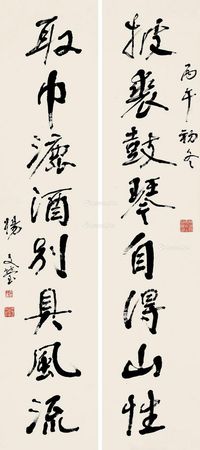 丙午初冬
披裘鼓琴自得山性
取巾漉酒别具風流
楊文瑩